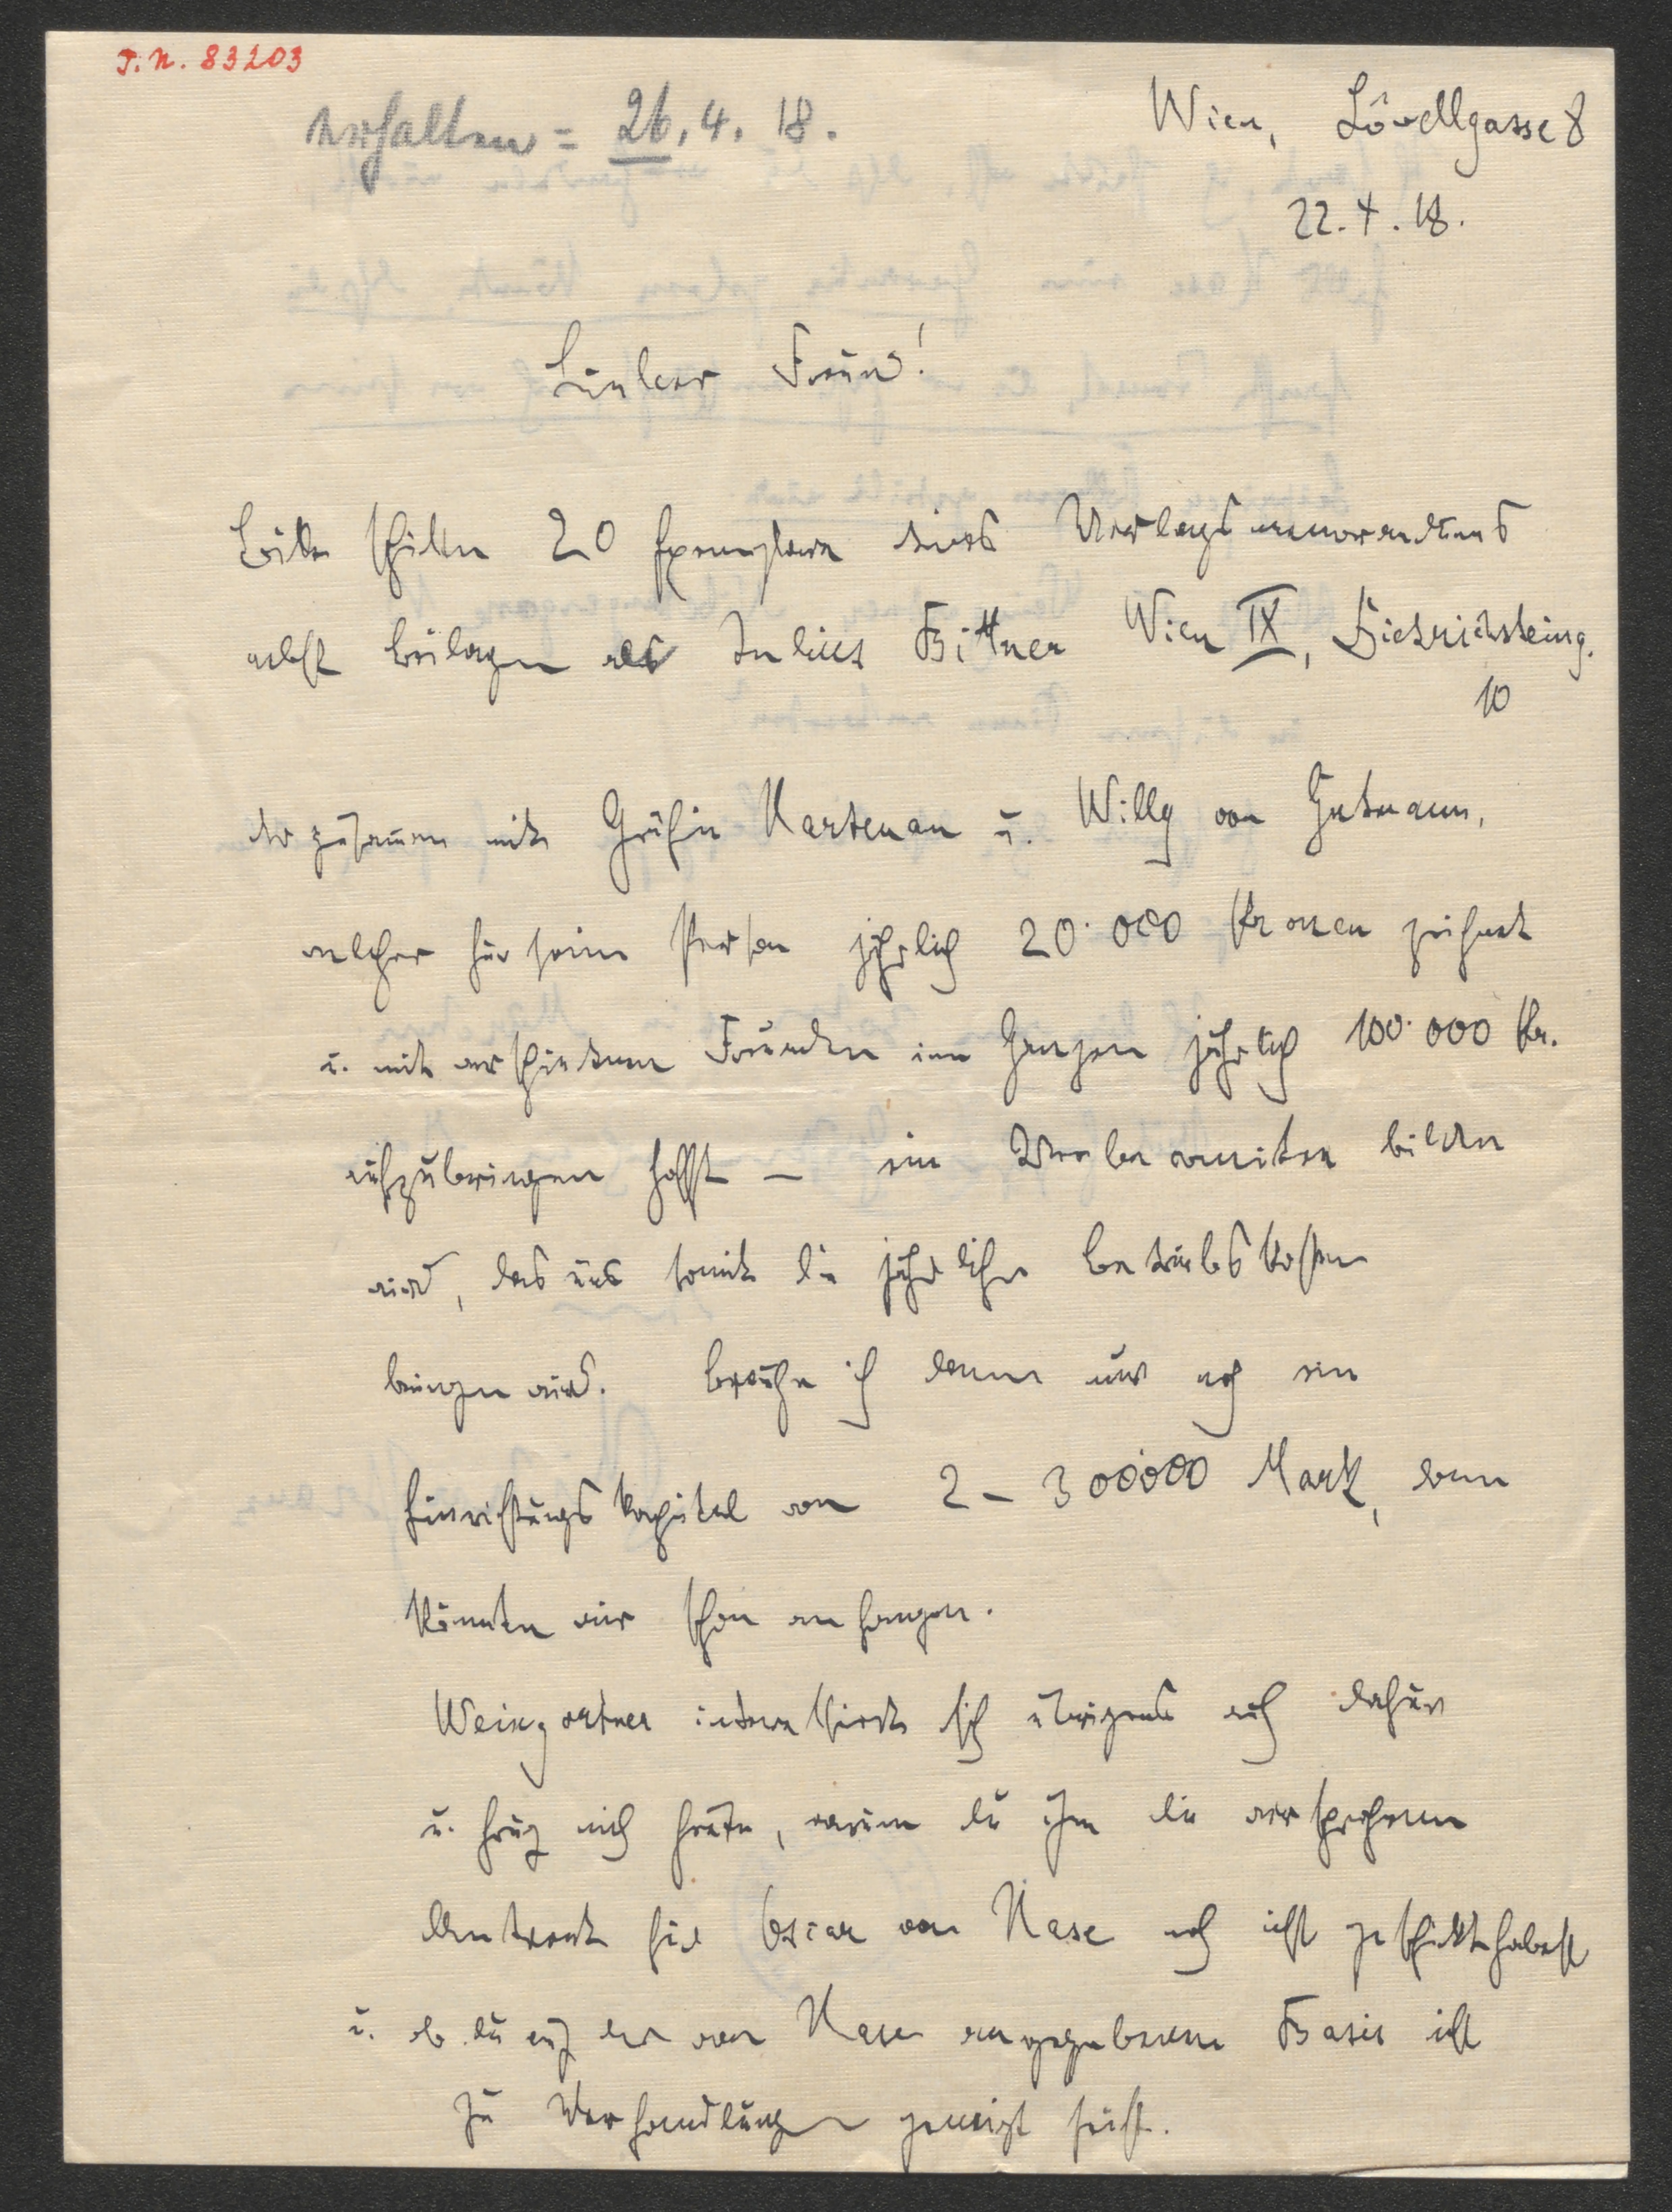 I. N. 83203
erhalten = 26. 4. 18.
Wien, Löwellgasse 8
22. 4. 18.
Lieber Freund!
Bitte schicke 20 Exemplare eines Verlags
nebst Beilagen an Julius Bittner Wien IX, Dietrichsteing.
10
der zusammen mit Gräfin Hartenau u. Willy von Gutmann,
welcher für seine Person jährlich 20.000 Kronen zeichnet
u. mit verschiedenen Freunden im Ganzen jährlich 100.000 Kr.
aufzubringen hofft – ein Werbecomitee bilden
wird, das uns somit die jährlichen Betriebskosten
bringen wird. Brauche ich dann nur noch ein
Einrichtungskapital von 2 – 300000 Mark, dann
könnten wir schon anfangen.
Weingartner interessirte sich übrigens auch dafür
u. frug mich heute, warum du ihm die versprochenen
für Oscar von Hase noch nicht geschickt habest
u. ob du auf der von Hase angegebenen Basis nicht
zu Verhandlungen geneigt seist.